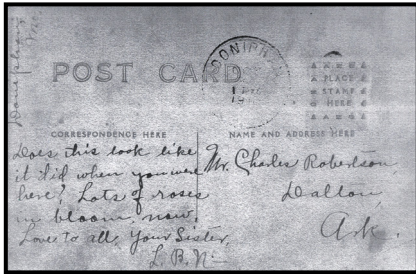 Doniphan,
Mo.
POST CARD
DONIPHAN
PLACE
STAMP
HERE
CORRESPONDENCE HERE
NAME AND ADDRESS HERE
Does this look like
it did when you were
here? Lots of roses
in bloom now.
Love to all, Your Sister,
L. B. N.
Mr. Charles Robertson,
Dalton,
Ark.